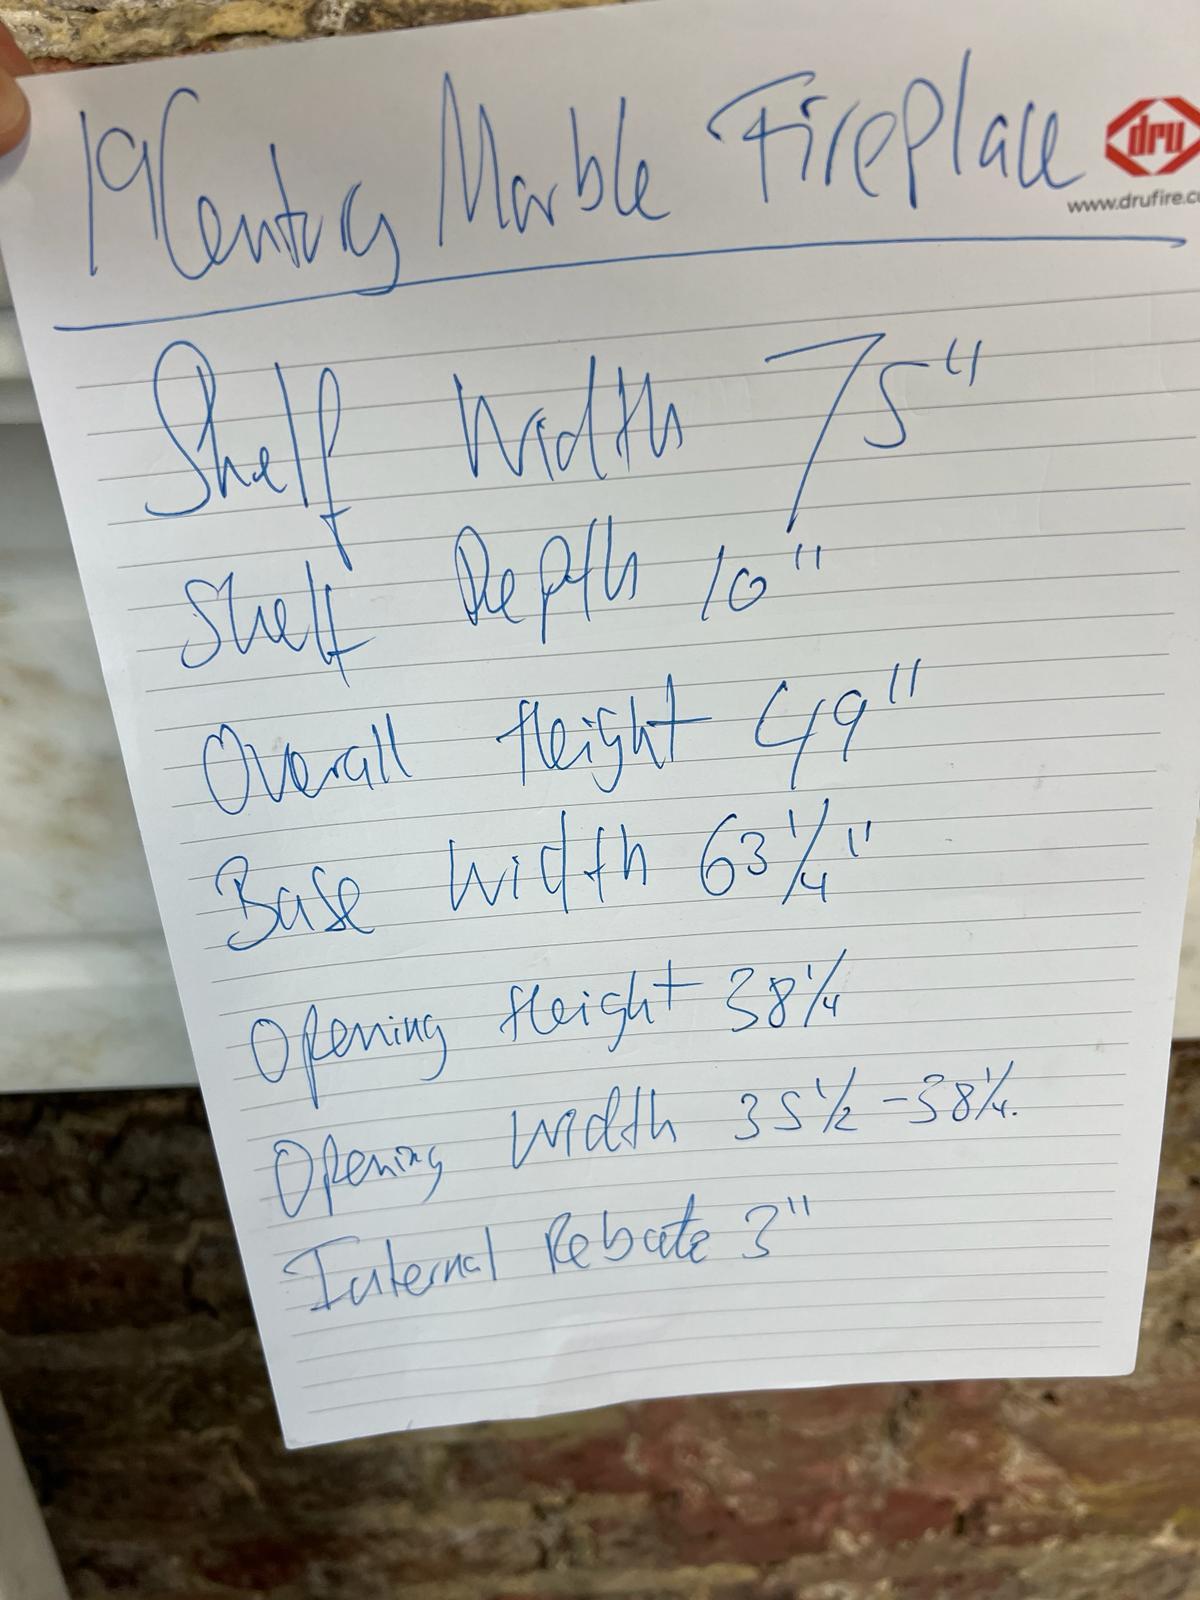 19 Century Marble Fireplace
dru
www.drufire.co
Shelf Width 75"
Shelf Depth 10"
Overall Height 49"
Base Width 63 1/4"
Opening Height 38 1/4
Opening Width 35 1/2 - 38 1/4.
Internal Rebate 3"